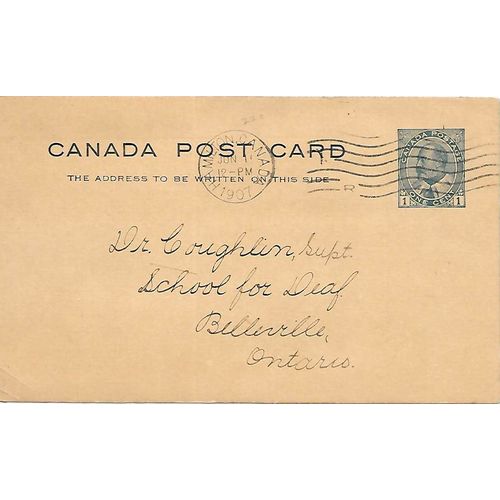 CANADA POST CARD
THE ADDRESS TO BE WRITTEN ON THIS SIDE
HAMILTON, CANADA
JUN 1
12-PM
1907
R
CANADA POSTAGE
1 1
ONE CENT
Dr. Coughlin, Supt.
School for Deaf.
Belleville,
Ontario.